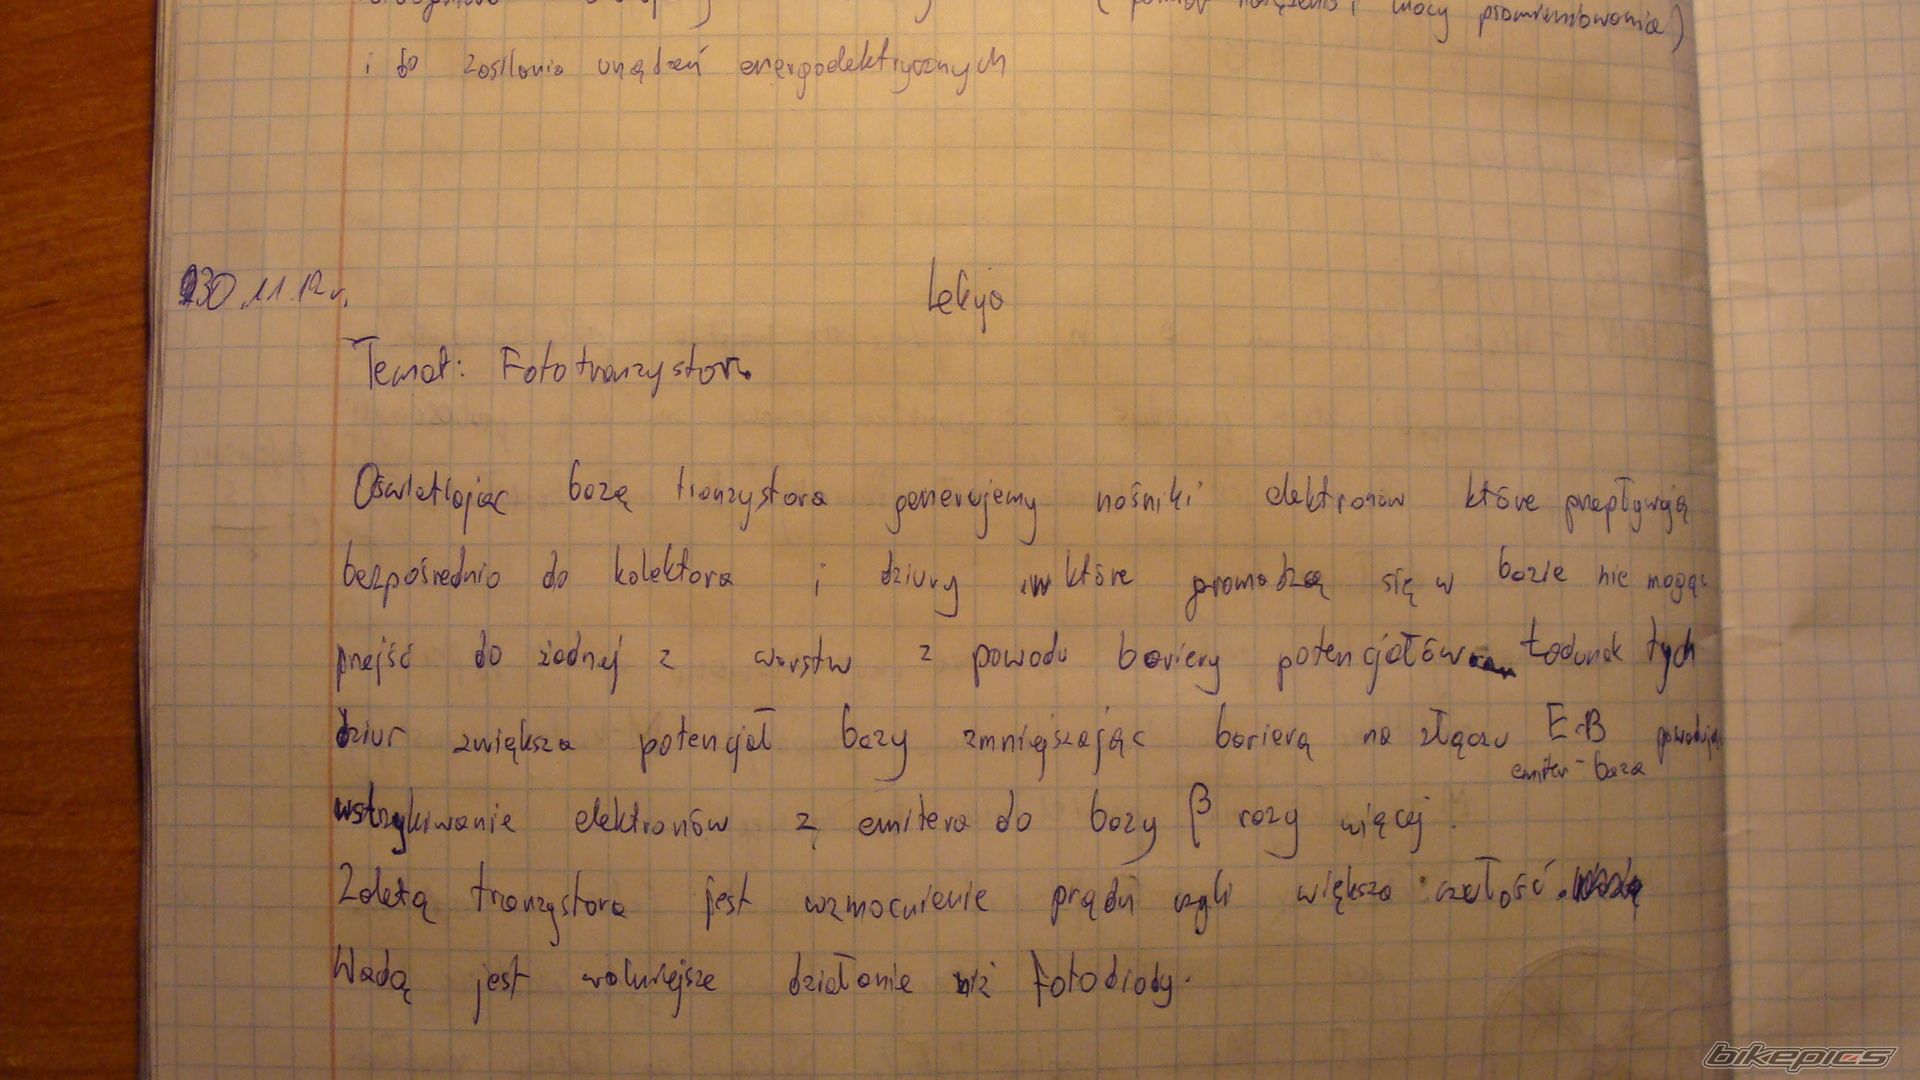 (pomiar natężenia i mocy promieniowania)
i do zasilania urządzeń energoelektrycznych
30.11.12r.
Lekcja
Temat: Fototranzystor.
Oświetlając bazę tranzystora generujemy nośniki elektronów które przepływają
bezpośrednio do kolektora i dziury które gromadzą się w bazie nie mogąc
przejść do żadnej z warstw z powodu bariery potencjałów Ładunek tych
dziur zwiększa potencjał bazy zmniejszając barierą na złączu E-B powodując
emiter-baza
wstrzykiwanie elektronów z emitera do bazy β razy więcej.
Zaletą tranzystora jest wzmocnienie prądu czyli większa czułość.
Wadą jest wolniejsze działanie niż fotodiody.
bikepics